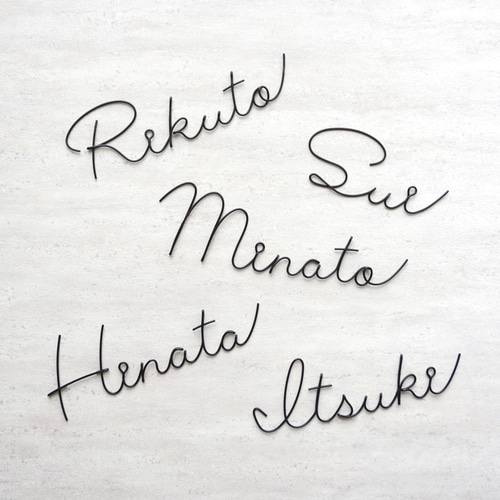 Rikuto
Sui
Minato
Hinata
Itsuki